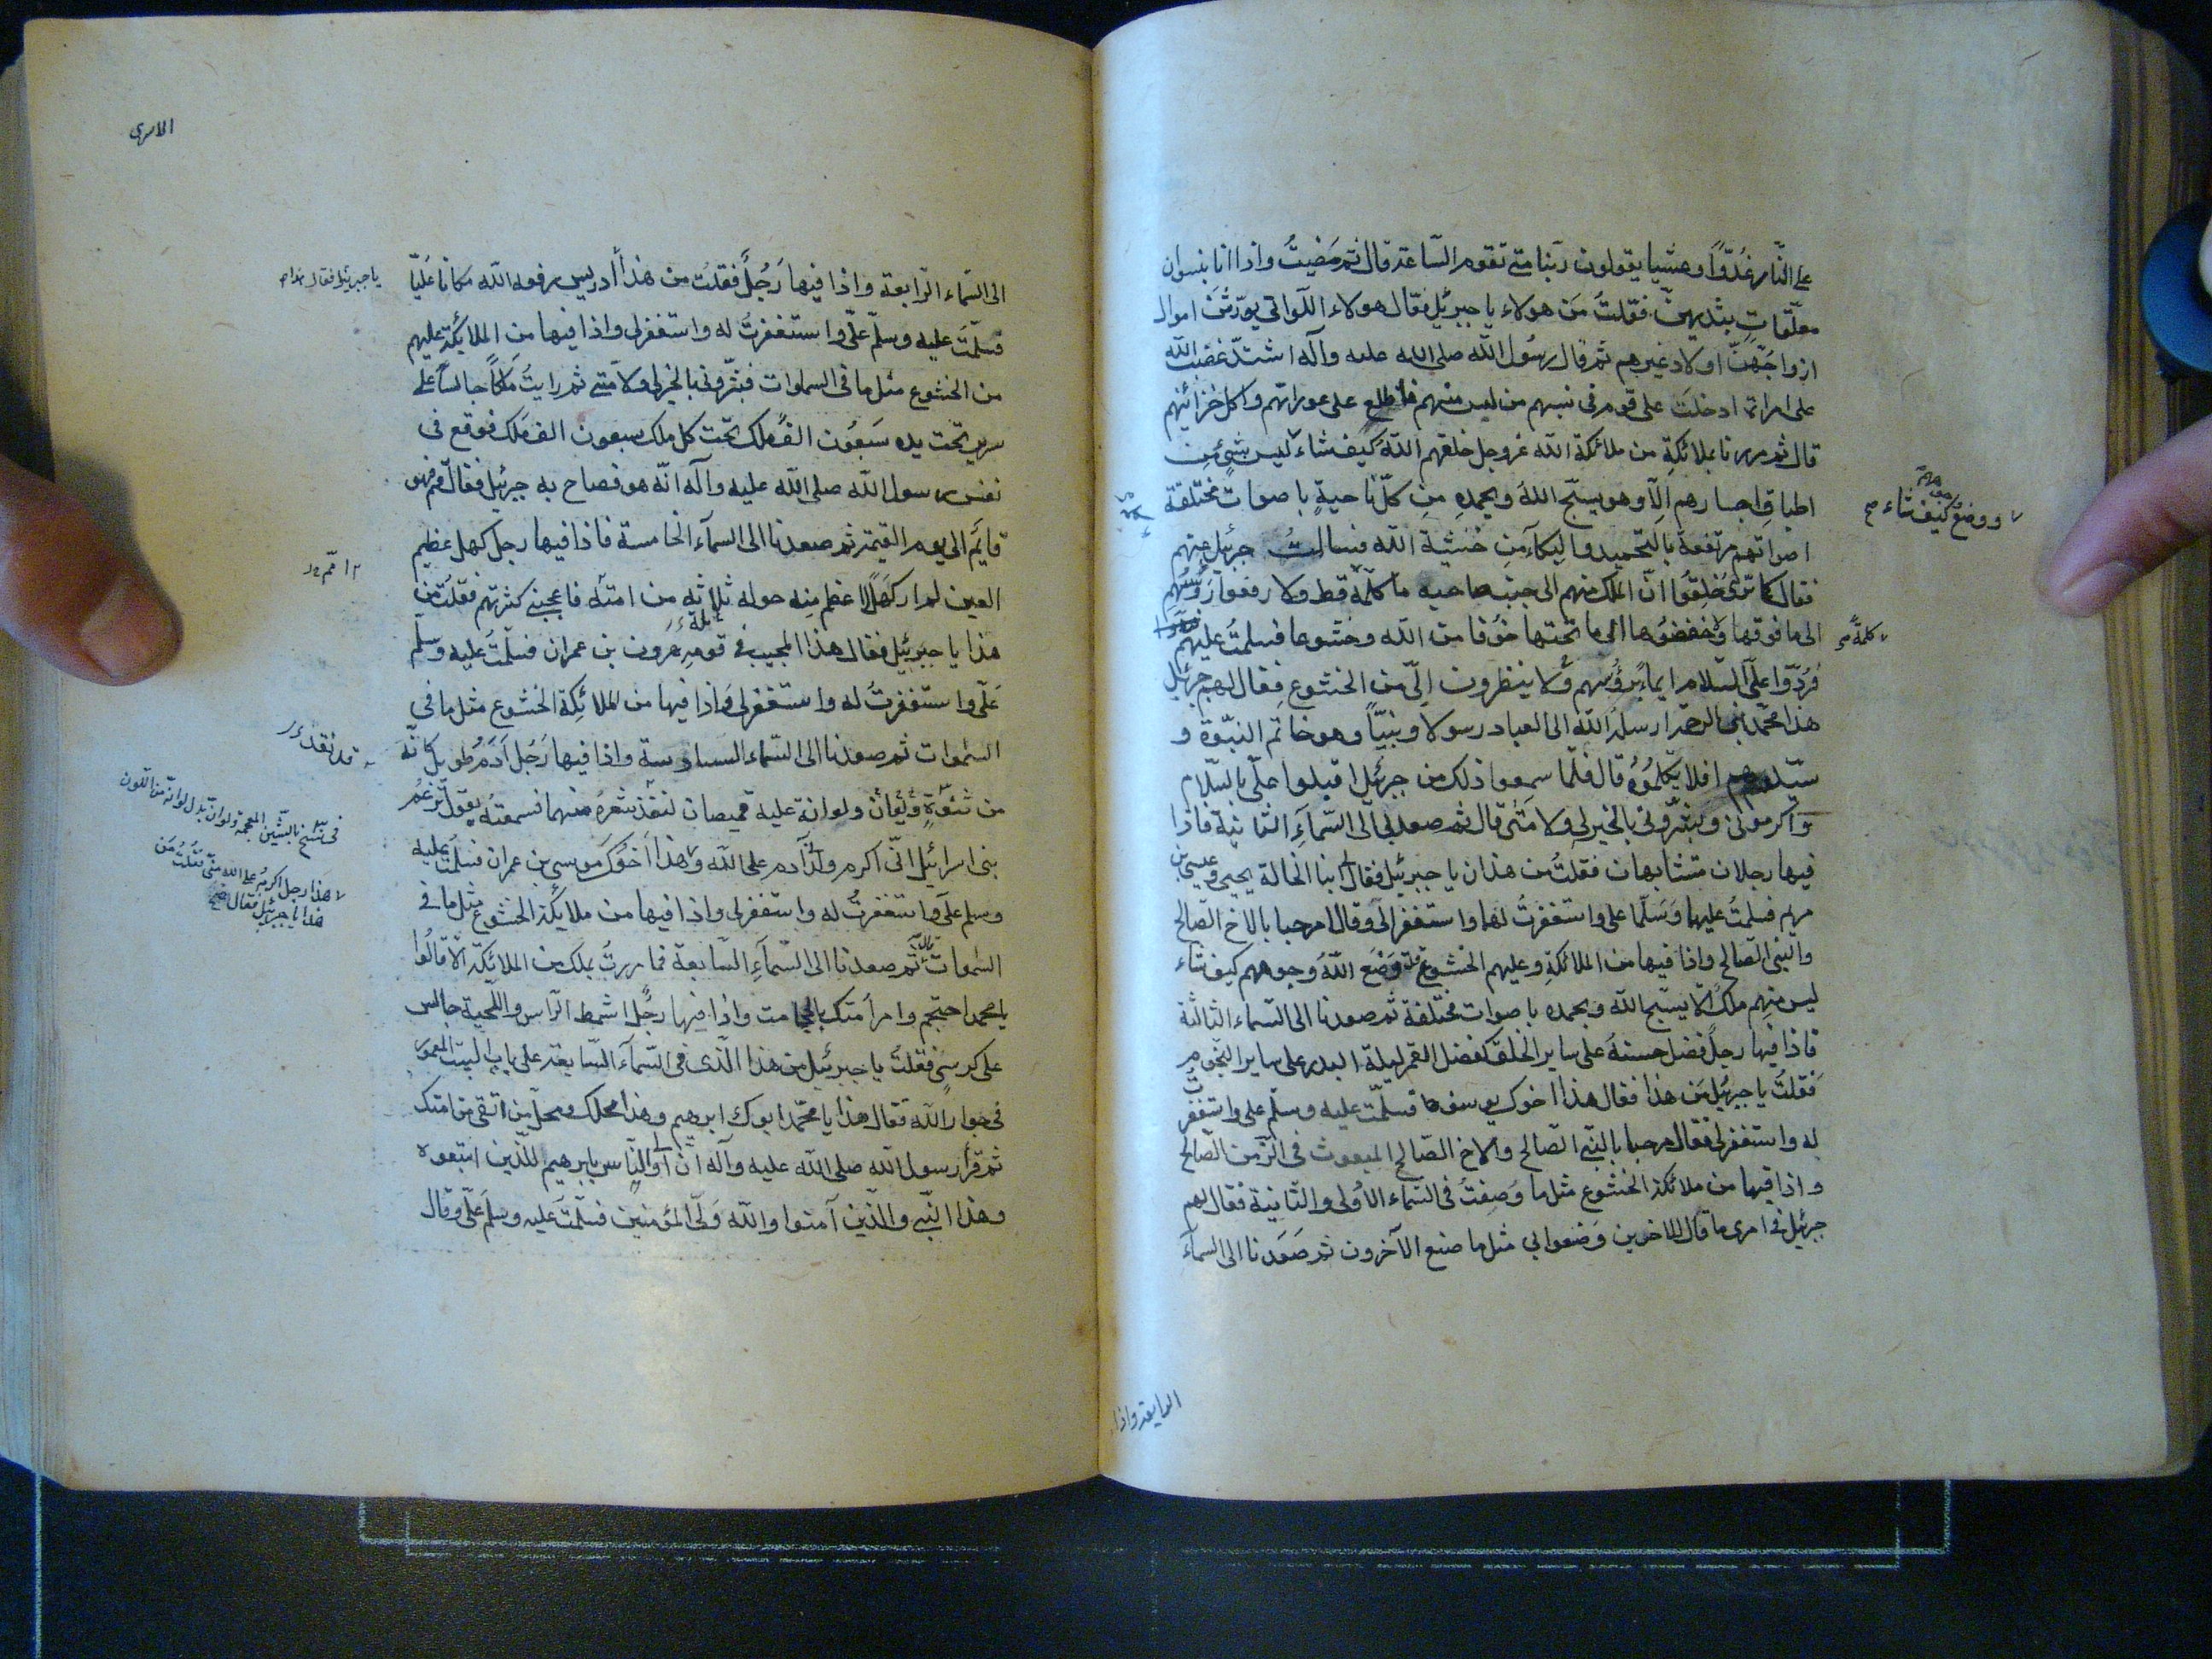 على النار غدوّا وعشيا يقولون ربنا متى تقوم الساعة قال ثم مضيت واذا انا بنسوان
معلّقات بثديهنّ فقلت من هولاء يا جبرئيل فقال هولاء اللواتي يورّثن اموال
ازواجهنّ اولاد غيرهم ثم قال رسول الله صلى الله عليه وآله اشتدّ غضب الله
على امراة ادخلت على قوم في نسبهم من ليس منهم فاطلع على عوراتهم واكل خزائنهم
قال ثم مررنا بملائكة من ملائكة الله عز وجل خلقهم الله كيف شاء ليس شئ من
اطباق اجسادهم الّا وهو يسبّح الله ويحمده من كلّ ناحية باصوات مختلفة
اصواتهم مرتفعة بالتحميد والبكاء من خشية الله فسالت جبرئيل عنهم
فقال كما ترى خلقوا انّ الملك منهم الى جنب صاحبه ما كلّمه قط ولا رفعوا رؤسهم
الى ما فوقها ولا خفضوها الى ما تحتها خوفا من الله وخشوعا فسلمت عليهم
فردّوا عليّ السلام ايماء برؤسهم ولا ينظرون اليّ من الخشوع فقال لهم جبرئيل
هذا محمّد نبي الرحمة ارسله الله الى العباد رسولا ونبيّا وهو خاتم النبوّة و
سيّدهم افلا تكلموه قال فلمّا سمعوا ذلك من جبرئيل اقبلوا عليّ بالسلام
واكرموني وبشّروني بالخير لي ولامتي قال ثم صعد بي الى السماء الثانية فاذا
فيها رجلان متشابهان فقلت من هذان يا جبرئيل فقال ابنا الخالة يحيى وعيسى بن
مريم فسلمت عليهما وسلّما على واستغفرت لهما واستغفرا لي وقالا مرحبا بالاخ الصالح
والنبي الصالح واذا فيها من الملائكة وعليهم الخشوع قد وضع الله وجوههم كيف شاء
ليس منهم ملك الا يسبّح الله وبحمده باصوات مختلفة ثم صعدنا الى السماء الثالثة
فاذا فيها رجل فضل حسنه على ساير الخلق كفضل القمر ليلة البدر على ساير النجوم
فقلت يا جبرئيل من هذا فقال هذا اخوك يوسف فسلّمت عليه وسلّم على واستغفرت
له واستغفر لي فقال مرحبا بالنبي الصالح والاخ الصالح المبعوث في الزمن الصالح
واذا فيها من ملائكة الخشوع مثل ما وصفت في السماء الاولى والثانية فقال لهم
جبرئيل في امرى ما قال للاخرين وصنعوا بي مثل ما صنع الآخرون ثم صعدنا الى السماء
ووضع كيف شاء
كلمة
الاسرى
الى السماء الرابعة واذا فيها رجل فقلت من هذا ادريس رفعه الله مكانا عليّا
فسلمت عليه وسلّم عليّ واستغفرت له واستغفر لي واذا فيها من الملائكة عليهم
من الخشوع مثل ما في السموات فبشّروني بالخير لي ولامتي ثم رايت ملكا جالسا على
سرير تحت يده سبعون الف ملك تحت كل ملك سبعون الف ملك فوقع في
نفس رسول الله صلى الله عليه وآله انّه هو فصاح به جبرئيل فقال قم فهو
قايم الى يوم القيمة ثم صعدنا الى السماء الخامسة فاذا فيها رجل كهل عظيم
العين لم ار كهلا اعظم منه حوله ثلاثة من امته فاعجبني كثرتهم فقلت من
هذا يا جبرئيل فقال هذا المجيب في قومه هرون بن عمران فسلّمت عليه وسلّم
عليّ واستغفرت له واستغفر لي واذا فيها من الملائكة الخشوع مثل ما في
السموات ثم صعدنا الى السماء السادسة واذا فيها رجل آدم طويل كانّه
من شنوة ولو انّ عليه قميصان لنفذ شعره منهما فسمعته يقول تزعم
بنى اسرائيل انّى اكرم ولد آدم على الله وهذا اخوك موسى بن عمران فسلمت عليه
وسلم علي واستغفرت له واستغفر لي واذا فيها من ملايكة الخشوع مثل ما في
السموات ثم صعدنا الى السماء السابعة فما مررت بملك من الملائكة الا قالوا
يا محمد احتجم وامر امتك بالحجامة واذا فيها رجل اشمط الراس واللحية جالس
على كرسي فقلت يا جبرئيل من هذا الذى في السماء السابعة على باب البيت المعمور
في جوار الله فقال هذا يا محمّد ابوك ابرهيم وهذا محلك ومحلّ من اتقى من امتك
ثم قرأ رسول الله صلى الله عليه وآله ان اولى الناس بابرهيم للذين اتبعوه
وهذا النبي والذين آمنوا والله ولي المؤمنين فسلّمت عليه وسلّم علي وقال
يا جبرئيل فقال هذا
هذا رجل اكرم على الله منى فقلت من
هذا يا جبرئيل فقال